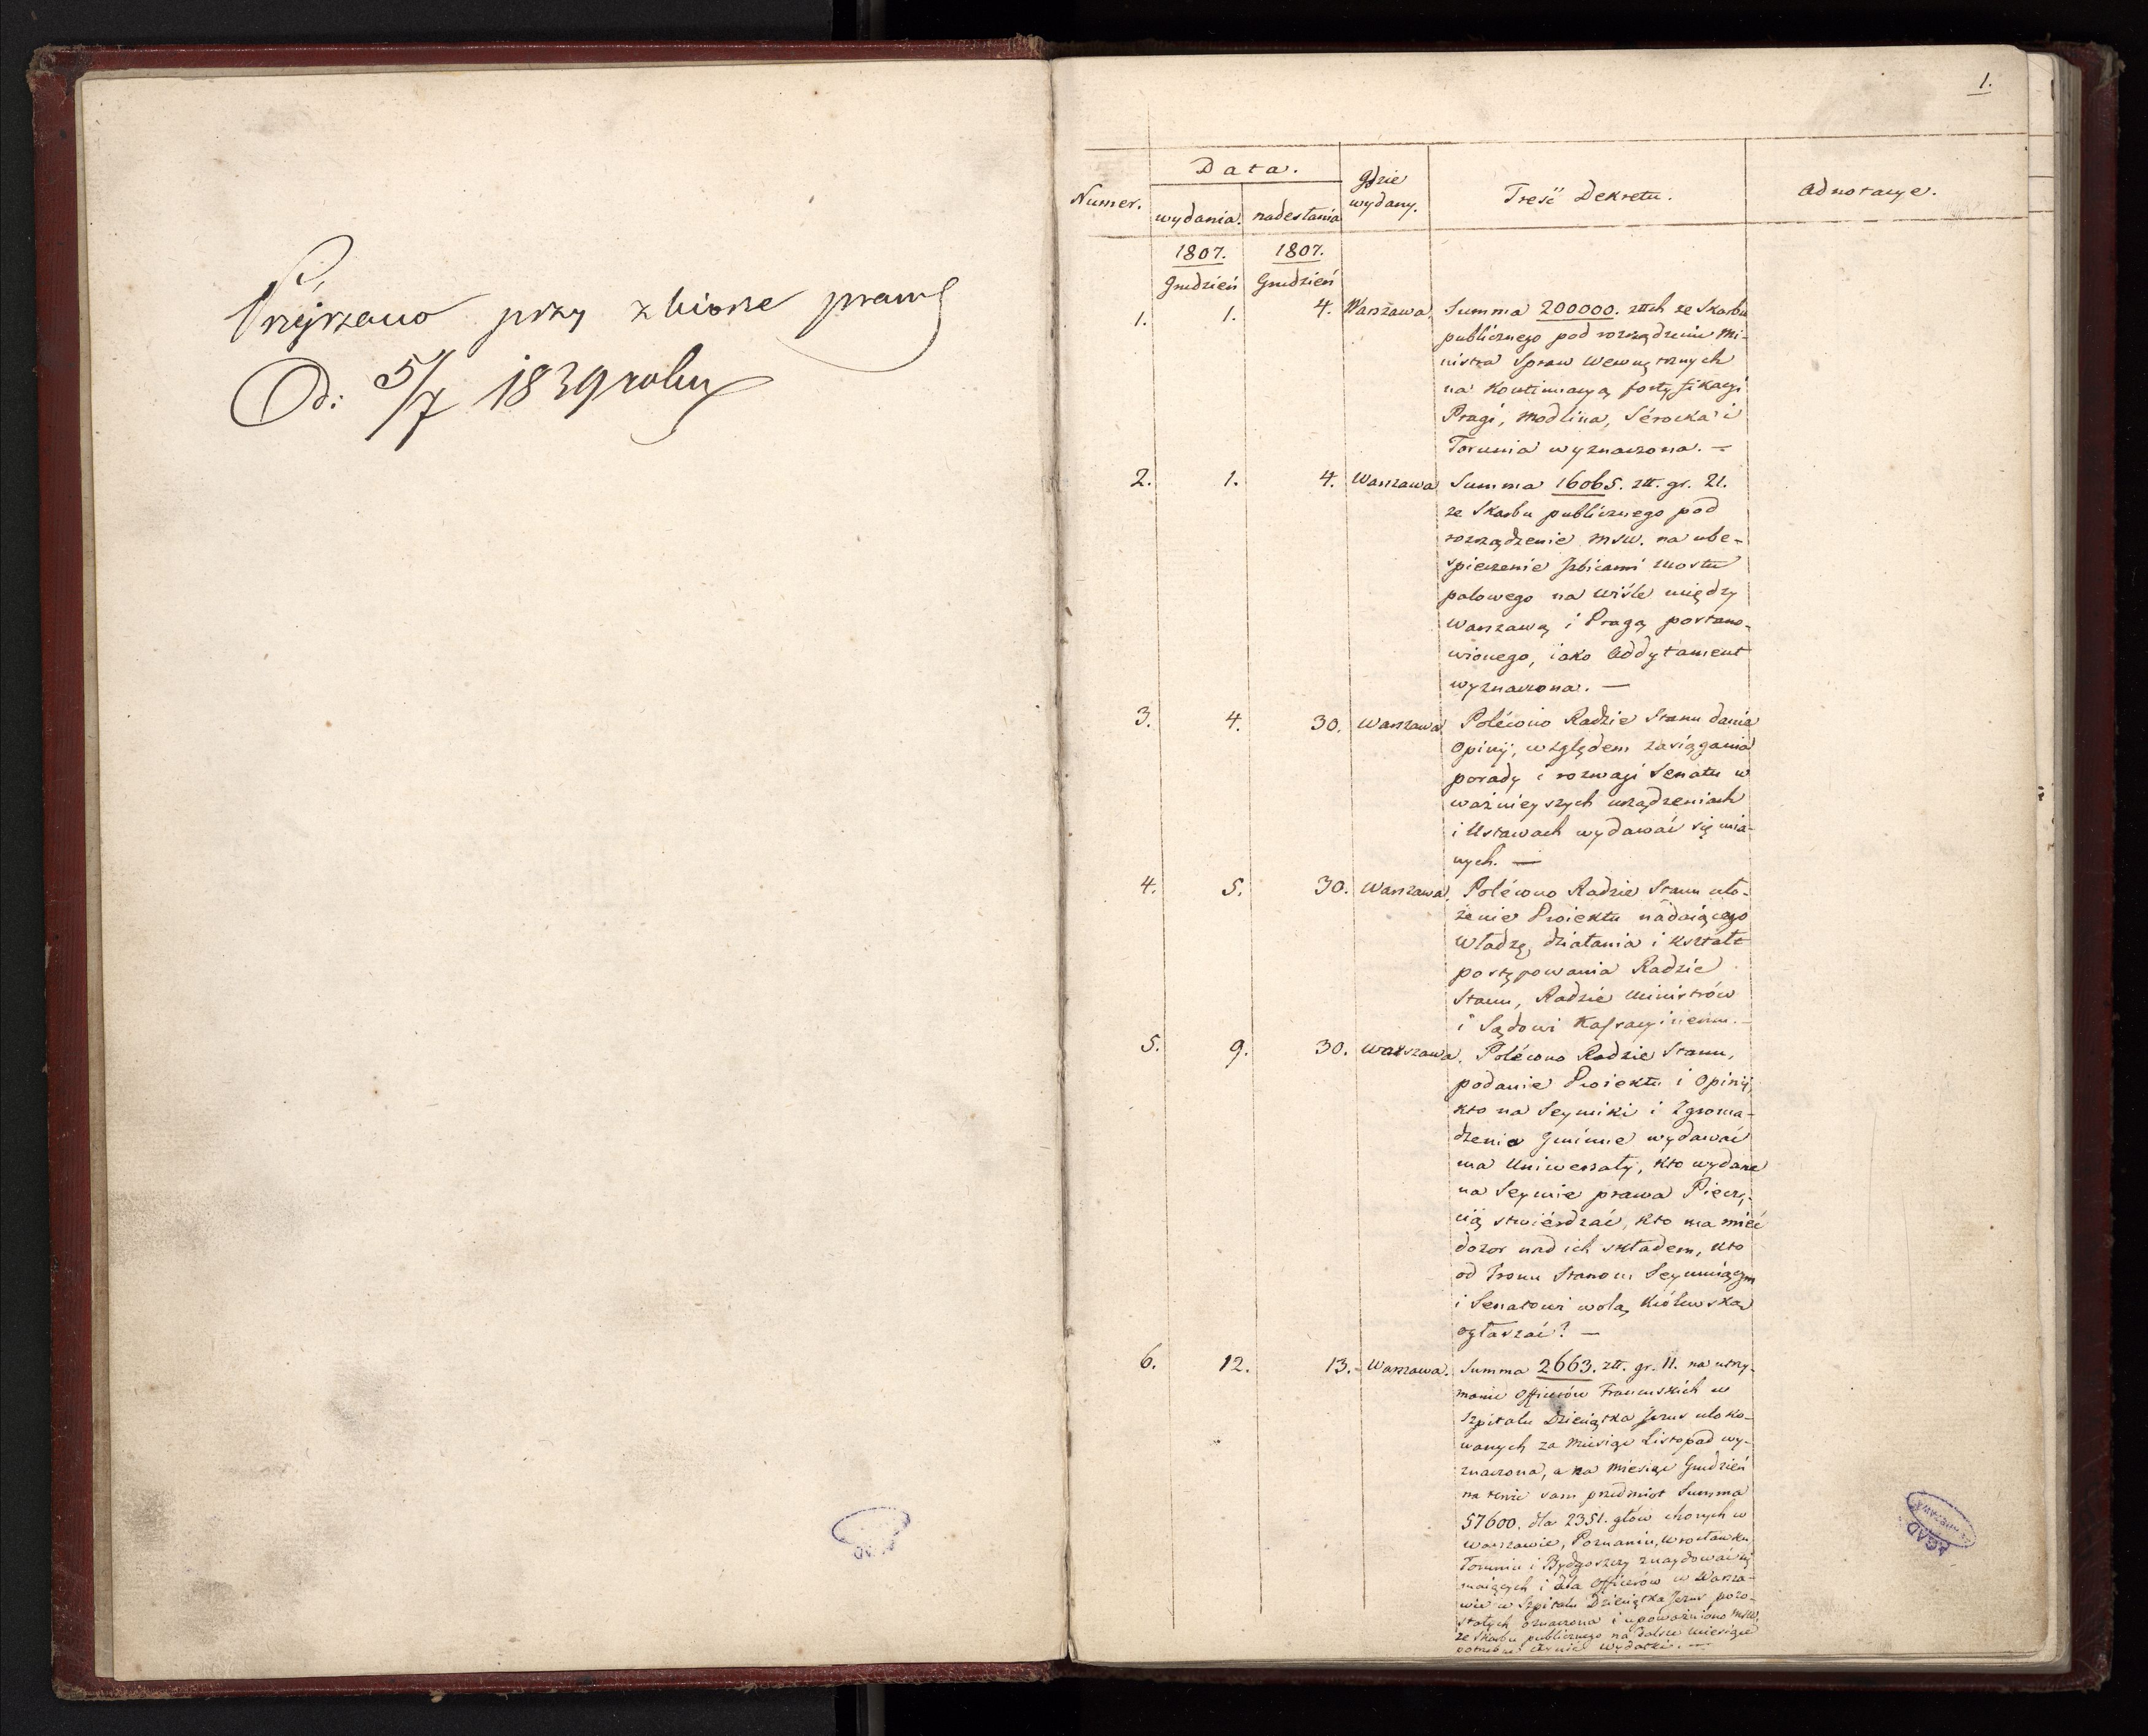 Przejrzano przy zbiorze praw
D: 5/7 1839 roku
1.
Numer.
Data.
wydania.
nadesłania
gdzie
wydany.
Treść Dekretu.
Adnotacye.
1807.
1807.
Grudzień
Grudzień
1.
1.
4.
Warszawa.
Summa 200000. złłch ze Skarbu
publicznego pod rozrządzenie Mi-
nistra Spraw Wewnętrznych
na kontinuacyą fortyfikacyi
Pragi, Modlina, Sérocka i
Torunia wyznaczona. —
2.
1.
4.
Warszawa
Summa 16065. złł. gr. 21.
ze Skarbu publicznego pod
rozrządzenie MSW. na ube-
spieczenie Jzbicami mostu
palowego na Wiśle między
Warszawą i Pragą postano-
wionego, iako Addytament
wyznaczona. —
3.
4.
30.
Warszawa
Polécono Radzie Stanu dania
Opinij, względem zasiągania
porady i rozwagi Senatu w
ważnieyszych urządzeniach
i Ustawach wydawać się mia-
nych. —
4.
5.
30.
Warszawa.
Polécono Radzie Stanu uło-
żenie Proiektu nadaiącego
Władzę, działania i kształt
postępowania Radzie
Stanu, Radzie Ministrów
i Sądowi Kassacyinemu. —
5.
9.
30.
Warszawa.
Polécono Radzie Stanu,
podanie Proiektu i Opinij,
kto na Seymiki i Zgroma-
dzenia Gminne wydawać
ma Uniwersały, kto wydane
na Seymie prawa Pieczę-
cią stwiérdzać, kto ma mieć
dozor nad ich składem, kto
od Tronu Stanom Seymuiącym
i Senatowi wolą Królewską
ogłaszać? —
6.
12.
13.
Warszawa.
Summa 2663. złł. gr. 11. na utrzy-
manie Officerów Francuskich w
Szpitalu Dzieciątka Jezus uloko-
wanych za Miesiąc Listopad wy-
znaczona, a na Miesiąc Grudzień
na tenże sam przedmiot Summa
57600. dla 2351. głów chorych w
Warszawie, Poznaniu, Wrocławku
Toruniu i Bydgoszczy znaydować się
maiących i dla Officerów w Warsza-
wie w Szpitalu Dzieciątka Jezus pozo-
stałych oznaczona i upoważniono MSW.
ze Skarbu publicznego na dalsze miesiące
potrzebne czynić wydatki. —
AGAD
WARSZAWA